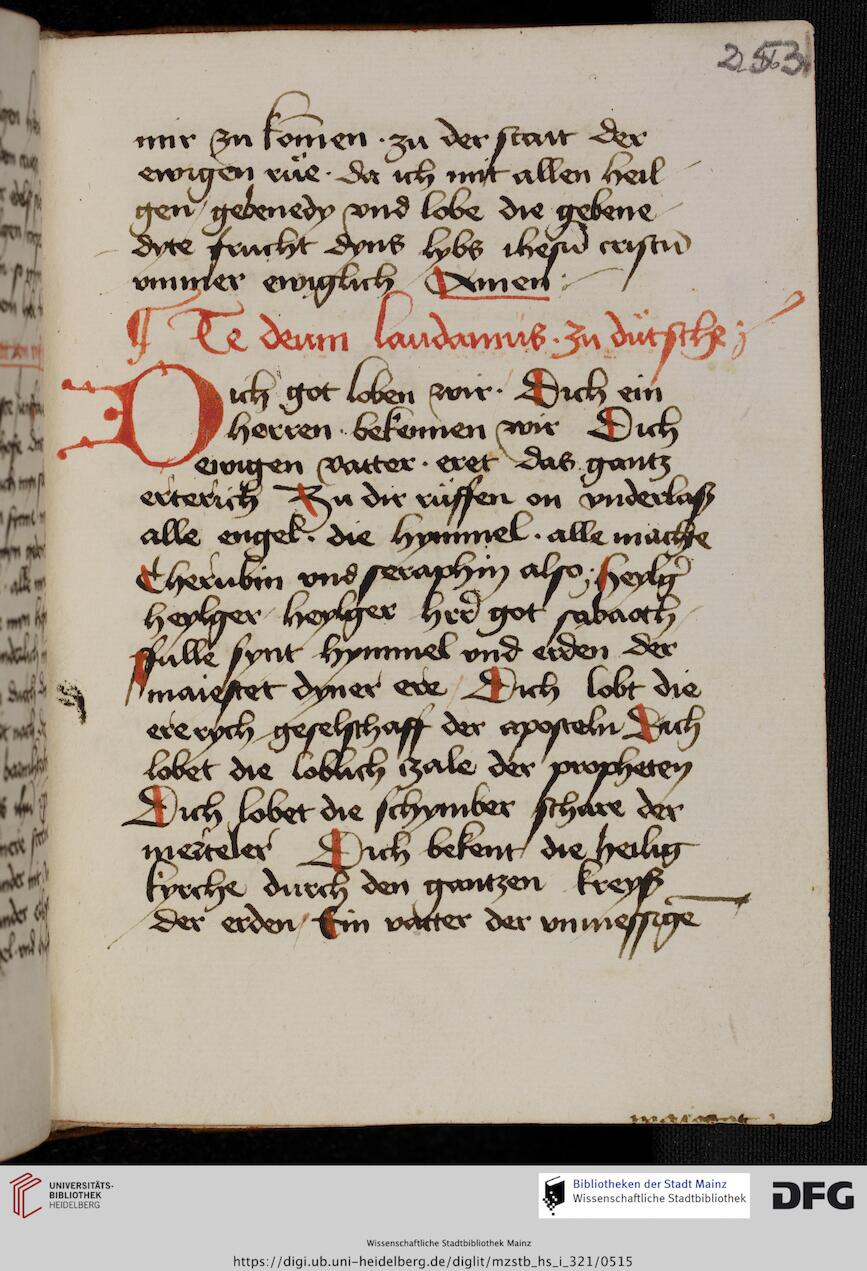 253
mir zu kom̄en · zu der statt der
ewigen růe · da ich mit allen heil
gen / gebenedy vnd lobe die gebene
dyte frucht dyns lybs ihesū cristū
vmmer ewiglich Amen :
¶ Te deum laudamus · zu dütsche ;
Dich got loben wir · Dich ein
herren · bekennen wir Dich
ewigen vatter · eret das gantz
erterich Zu dir rüffen on vnderlaß
alle engel · die hymmel · alle mächte
Cherubin vnd seraphin also ; heylg̉
heylger heylger hrr̄ got sabaoth /
ffulle synt hymmel vnd erden der
maiestet dyner ere / Dich lobt die
ererych geselschaff der aposteln Dich
lobet die loblich zale der propheten
Dich lobet die schymber schare der
merteler Dich bekent die heilig
kyrche durch den gantzen kreyß
der erden / Ein vatter der vnmessigē
UNIVERSITÄTS-
BIBLIOTHEK
HEIDELBERG
Bibliotheken der Stadt Mainz
Wissenschaftliche Stadtbibliothek
DFG
Wissenschaftliche Stadtbibliothek Mainz
https://digi.ub.uni-heidelberg.de/diglit/mzstb_hs_i_321/0515